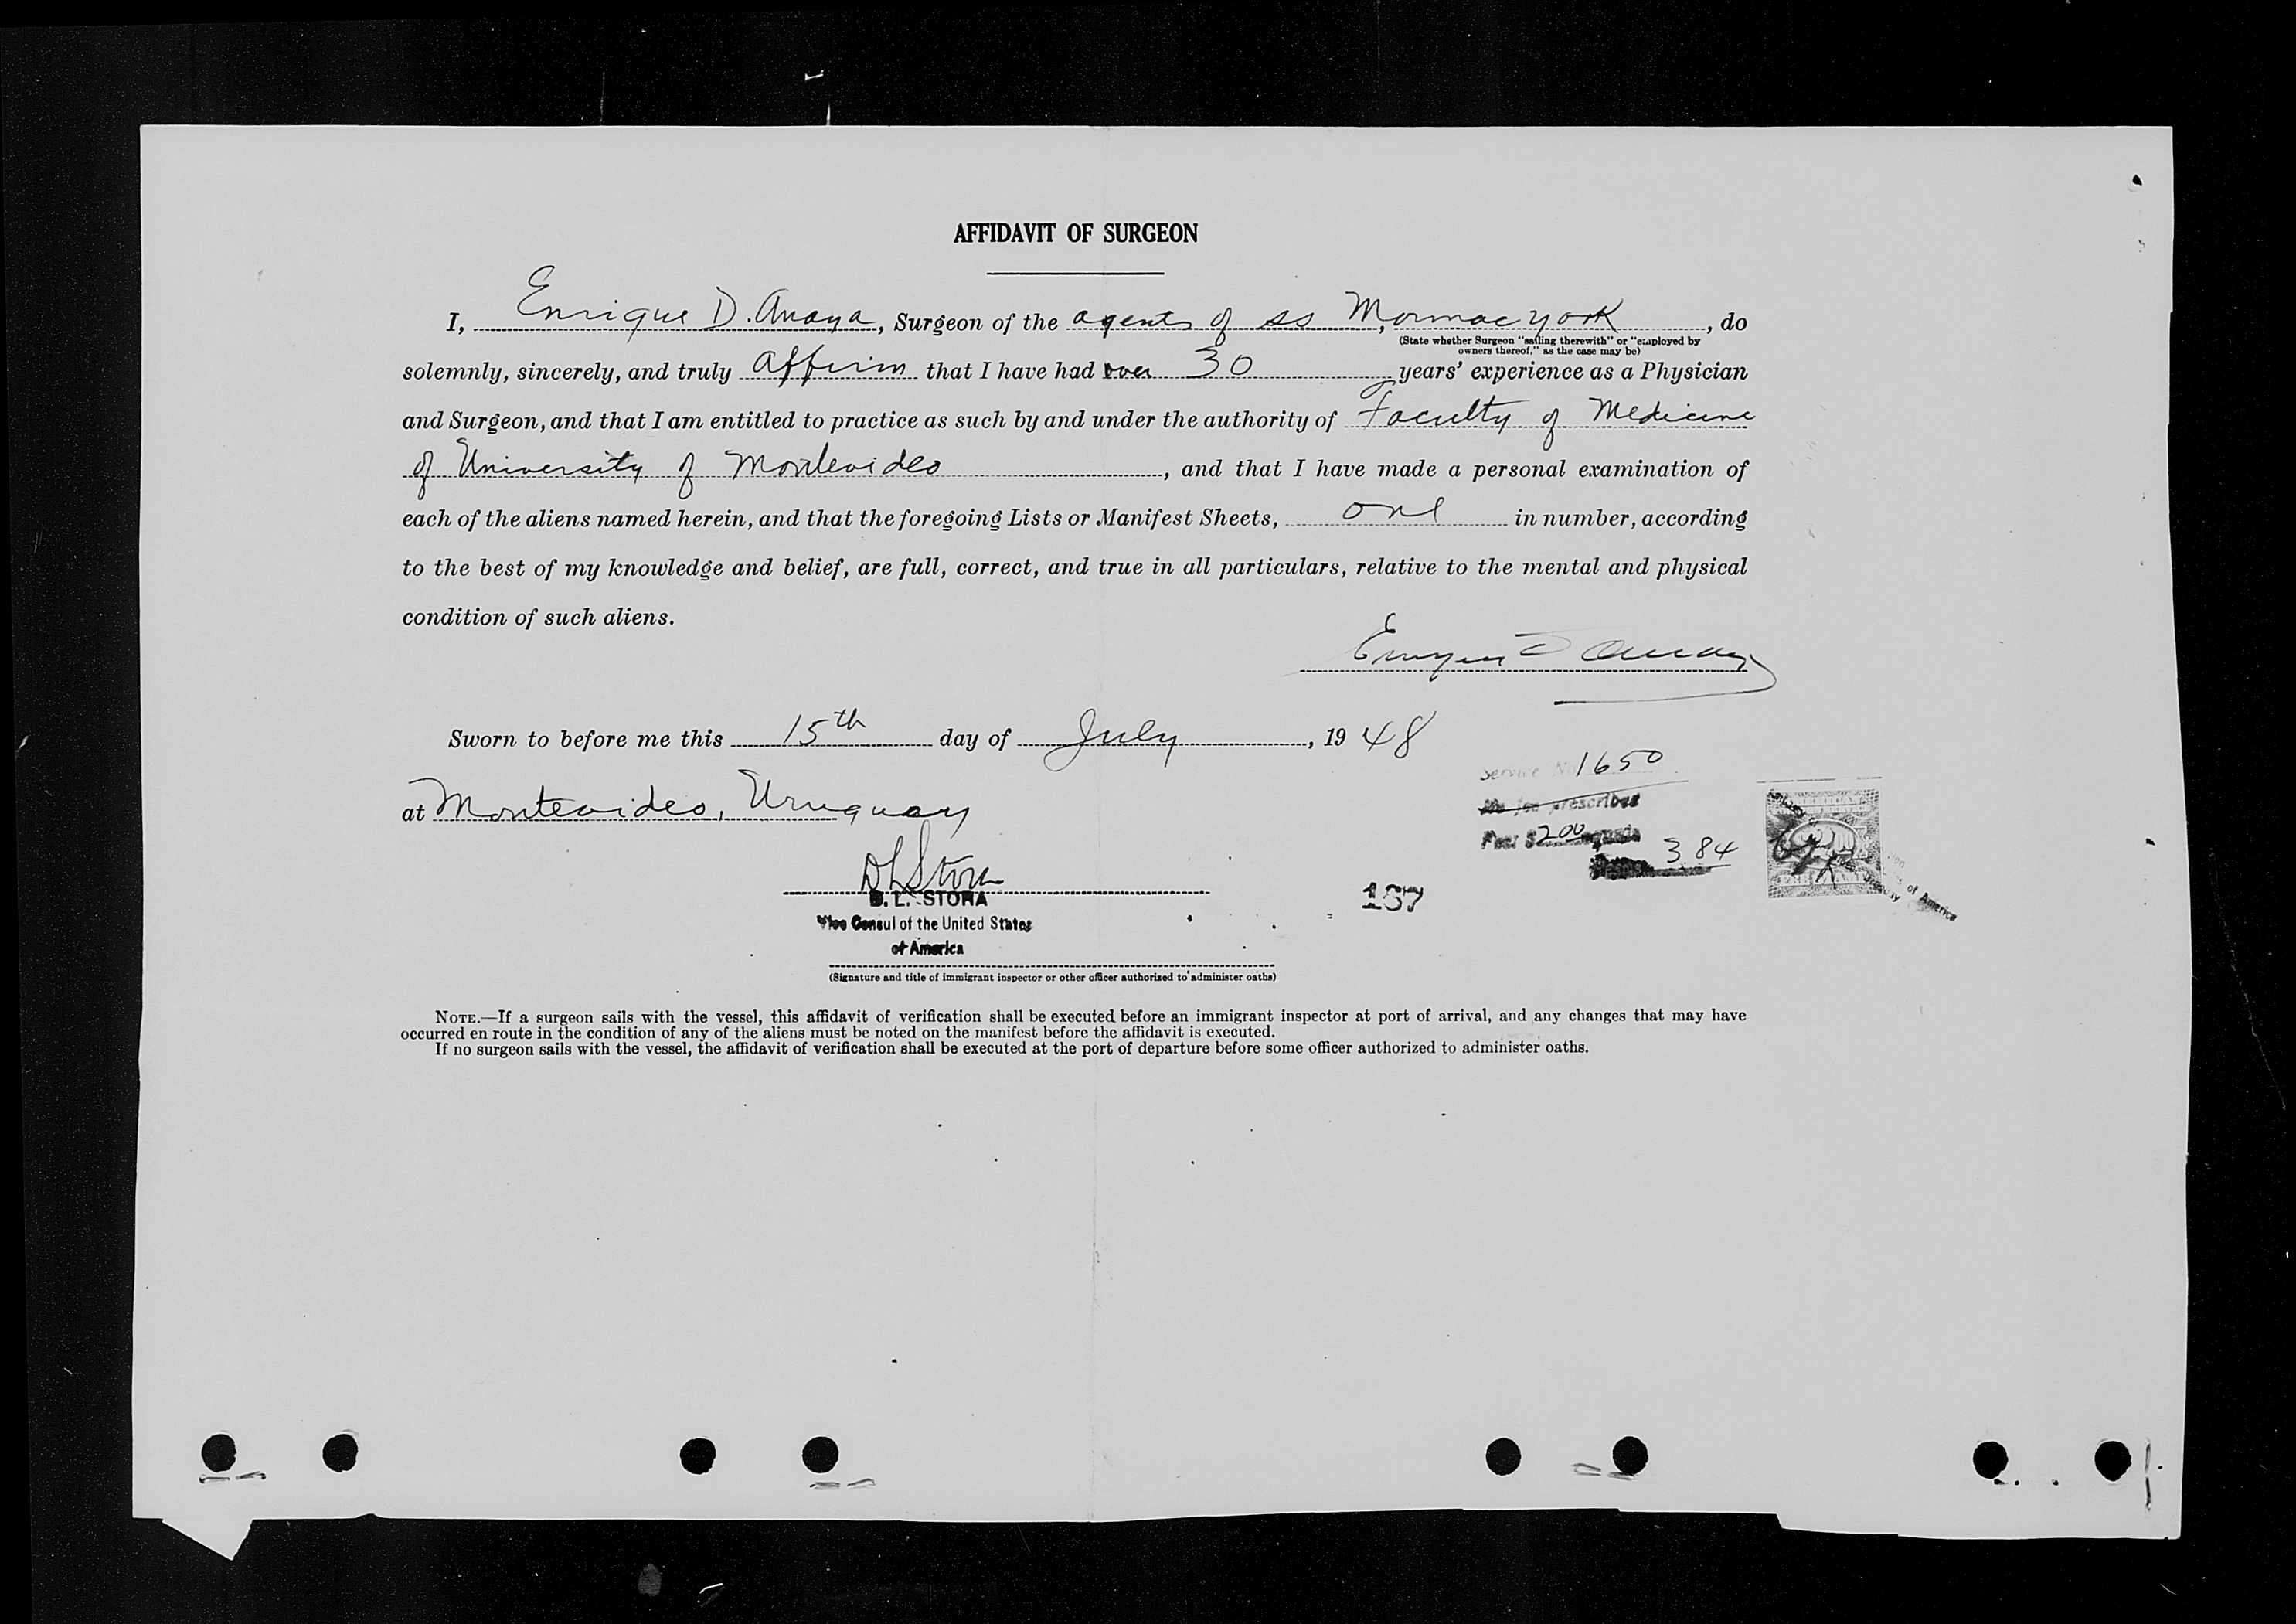 AFFIDAVIT OF SURGEON
I, Enrique D. Anaya, Surgeon of the agents of ss Mormacyork, do
(State whether Surgeon "sailing therewith" or "employed by
owners thereof," as the case may be)
solemnly, sincerely, and truly affirm that I have had over 30 years' experience as a Physician
and Surgeon, and that I am entitled to practice as such by and under the authority of Faculty of Medicine
of University of Montevideo, and that I have made a personal examination of
each of the aliens named herein, and that the foregoing Lists or Manifest Sheets, one in number, according
to the best of my knowledge and belief, are full, correct, and true in all particulars, relative to the mental and physical
condition of such aliens.
Sworn to before me this 15th day of July, 1948
Service No 1650
at Montevideo, Uruguay
No fee prescribed
Fee: $2.00 equals
3.84
DLStora
D. L. STORA
167
Vice Consul of the United States
of America
of America
(Signature and title of immigrant inspector or other officer authorized to administer oaths)
NOTE.—If a surgeon sails with the vessel, this affidavit of verification shall be executed before an immigrant inspector at port of arrival, and any changes that may have
occurred en route in the condition of any of the aliens must be noted on the manifest before the affidavit is executed.
If no surgeon sails with the vessel, the affidavit of verification shall be executed at the port of departure before some officer authorized to administer oaths.